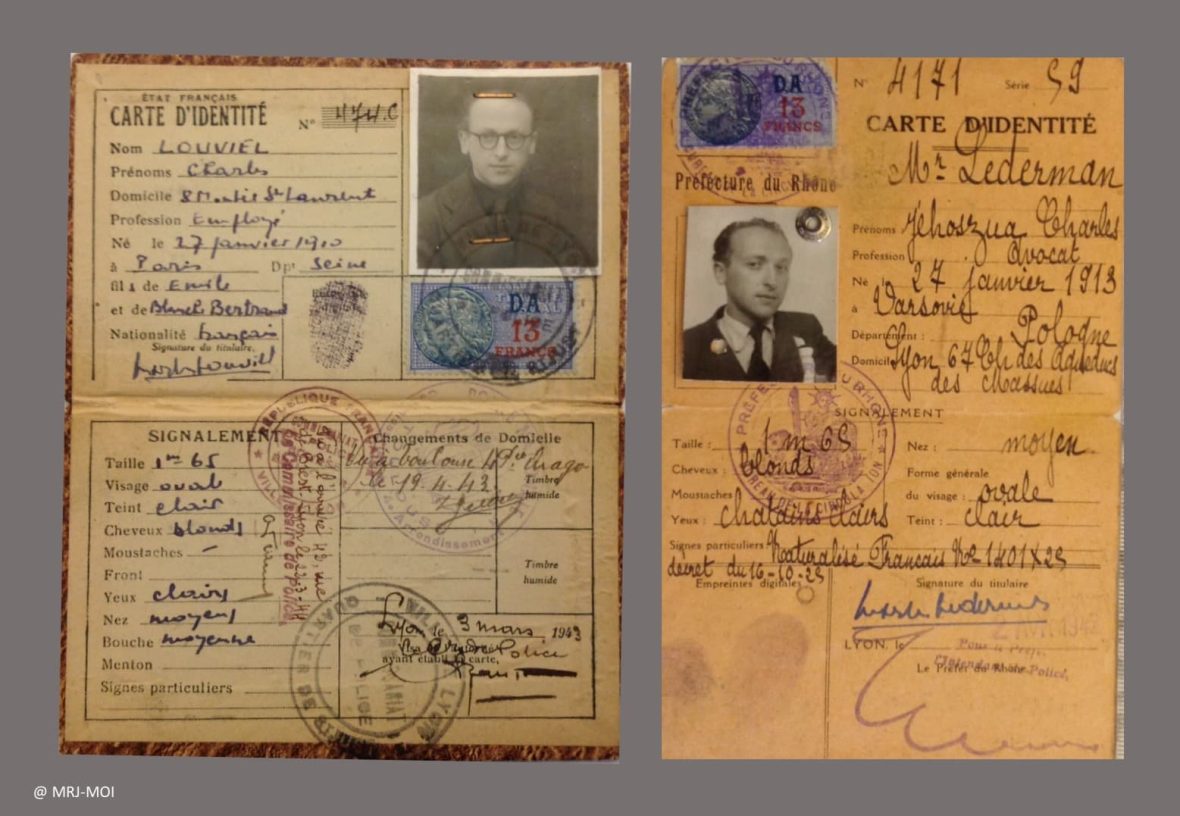 ÉTAT FRANÇAIS
CARTE D'IDENTITÉ
N° 474.C
Nom LOUVIEL
Prénoms Charles
Domicile 8 St Laurent
Profession Employé
Né le 27 janvier 1910
à Paris Dpt Seine
fils de Emile
et de Blanche Bertrand
Nationalité français
Signature du titulaire,
DA
13
FRANCS
SIGNALEMENT
Taille 1m 65
Visage ovale
Teint clair
Cheveux blonds
Moustaches –
Front
Yeux clairs
Nez moyen
Bouche moyenne
Menton
Signes particuliers
RÉPUBLIQUE FRANÇAISE
Le Commissaire de Police
Changements de Domicile
Vu à Toulouse
le 19.4.43.
Timbre
humide
Timbre
humide
Lyon le 3 mars 1943
Police
ayant établi la carte,
DA
13
FRANCS
N° 4171 Série 59
CARTE D'IDENTITÉ
Préfecture du Rhône
Mr Lederman
Prénoms Jehoszua Charles
Profession Avocat
Né 27 janvier 1913
à Varsovie
Département : Pologne
Domicile Lyon 67 Ch. des Aqueducs
des Massues
PRÉFECTURE DU RHÔNE
SIGNALEMENT
Taille : 1 m 65
Cheveux : blonds
Moustaches
Yeux : chatains clairs
Nez : moyen.
Forme générale
du visage : ovale
Teint : clair
Signes particuliers Naturalisé Français No 1401 X 25
décret du 16-10-25
Empreintes digitales
Signature du titulaire
LYON, le
Pour le Préfet,
Le Préfet du Rhône
@ MRJ-MOI